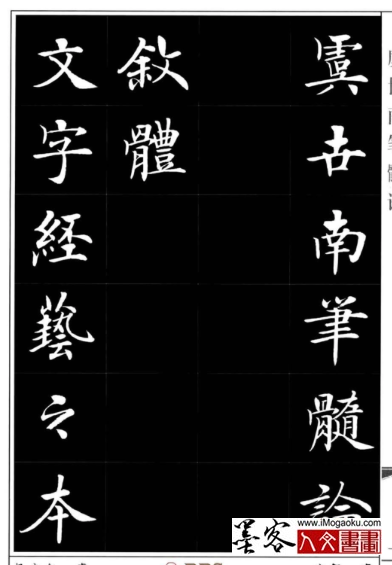 虞世南筆髓論
敘體
文字經藝之本
墨客
www.iMogaoku.com
人文書畫